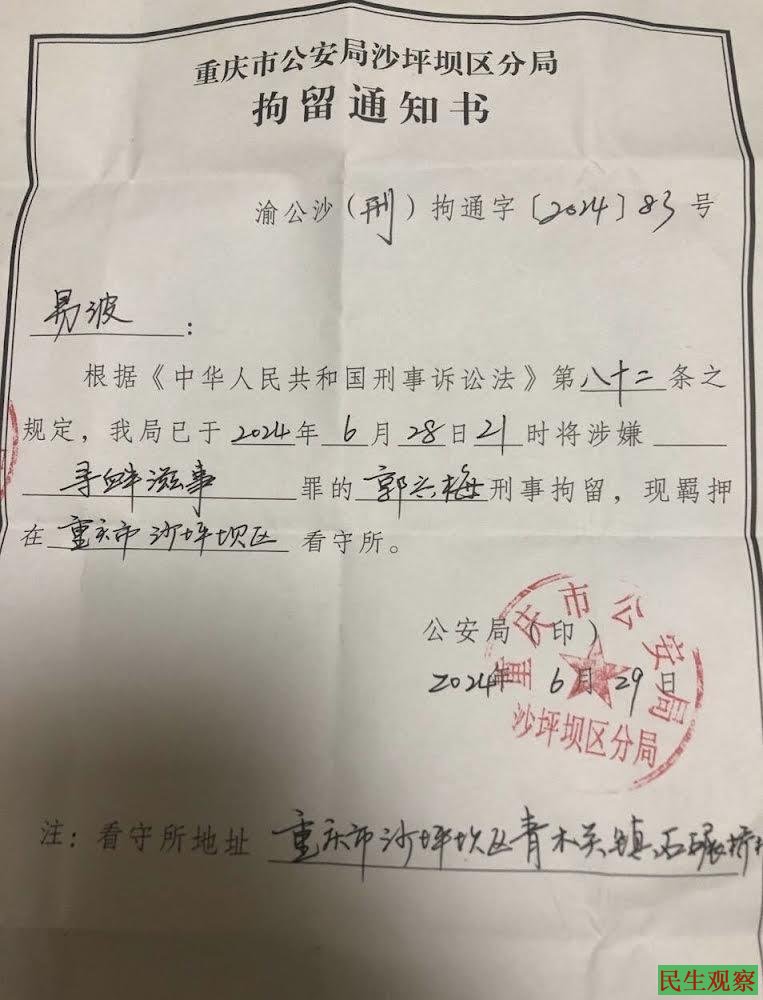 重庆市公安局沙坪坝区分局
拘留通知书
渝公沙(刑)拘通字〔2024〕83号
易波:
根据《中华人民共和国刑事诉讼法》第八十二条之
规定,我局已于2024年6月28日21时将涉嫌
寻衅滋事罪的郭兴梅刑事拘留,现羁押
在重庆市沙坪坝区看守所。
公安局(印)
2024年6月29日
重庆市公安局
沙坪坝区分局
注:看守所地址 重庆市沙坪坝区青木关镇石碾桥
民生观察